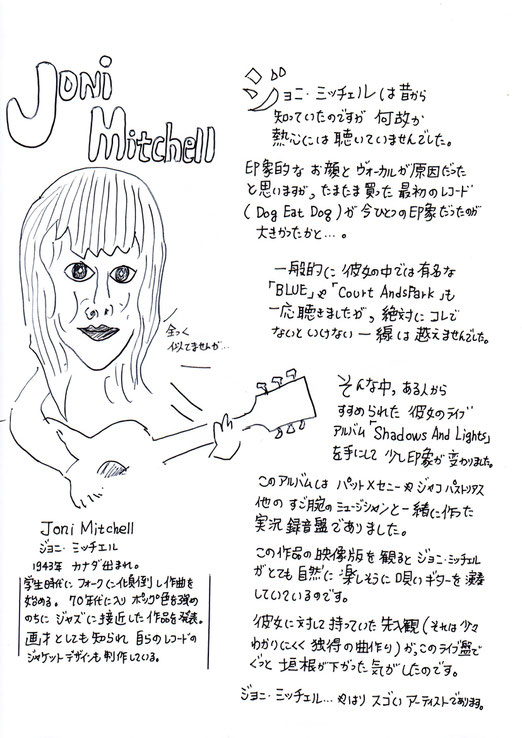 Joni
Mitchell
ジョニ・ミッチェルは昔から
知っていたのですが 何故か
熱心には聴いていませんでした。
印象的な お顔と ヴォーカルが原因だった
と思いますが、たまたま買った 最初のレコード
(Dog Eat Dog)が 今ひとつの印象だったのが
大きかったかと…。
一般的に 彼女の中では有名な
「BLUE」や「Court AndSPark」も
一応聴きましたが、絶対に コレで
ないといけない 一線は 越えませんでした。
全っく
似てませんが…
そんな中、ある人から
すすめられた 彼女のライブ
アルバム「Shadows And Lights」
を手にして 少し印象が 変わりました。
このアルバムは パットメセニーや ジャコ パストリアス
他の すご腕の ミュージシャンと一緒に作った
実況 録音盤でありました。
この作品の 映像版を 観ると ジョニ・ミッチェル
がとても 自然に 楽しそうに 唄い ギターを 演奏
しているのです。
彼女に対して持っていた 先入観(それは 少々
わかりにくく 独得の曲作り)が、このライブ盤で
ぐっと 垣根が下がった 気がしたのです。
ジョニ・ミッチェル… やはり スゴい アーティストであります。
Joni Mitchell
ジョニ・ミッチェル
1943年 カナダ出まれ。
学生時代に フォークに傾倒し作曲を
始める。 70年代に入り ポップ色を強め
のちに ジャズに接近した作品を発表。
画才としても知られ 自らのレコードの
ジャケットデザインも制作している。